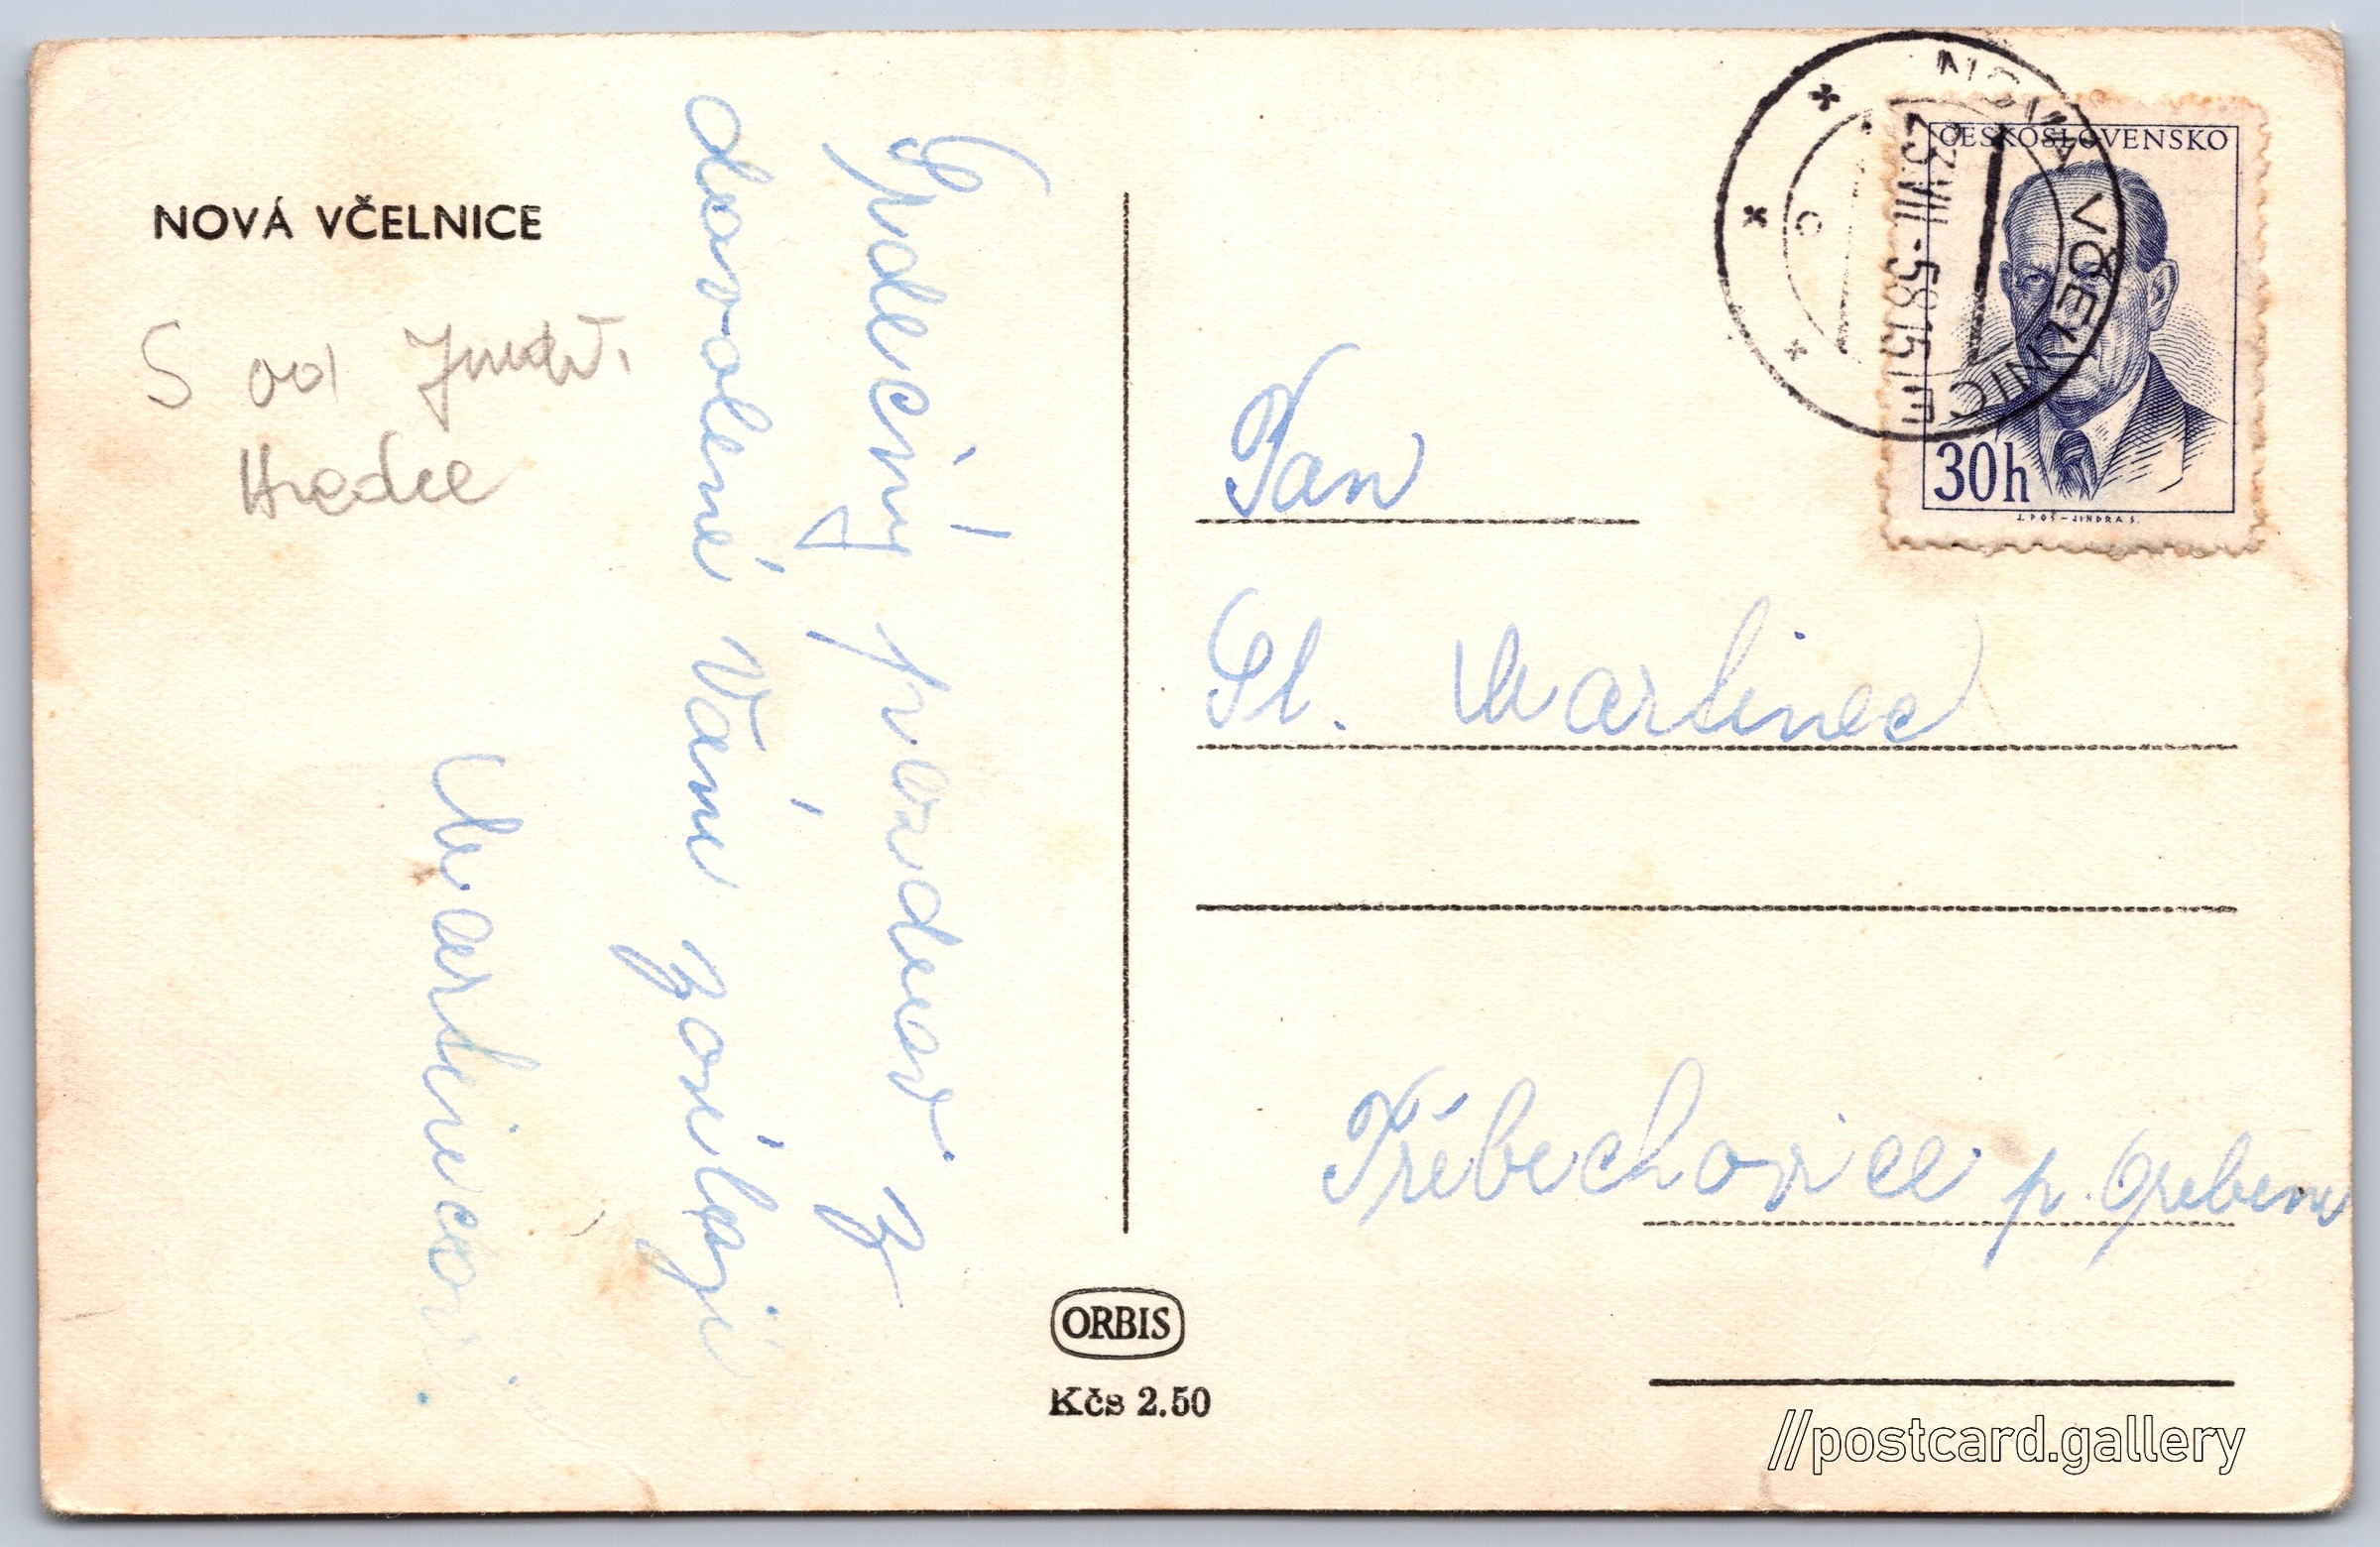 NOVÁ VČELNICE
S od Jindř.
Hradce
Srdečný pozdrav z
dovolené Vám posílají
Martincovi.
ORBIS
Kčs 2.50
NOVÁ VČELNICE
23.VII.-58 15
C
ČESKOSLOVENSKO
30h
J. POŠ-JINDRA S.
Pan
Sl. Martinec
Třebechovice p. Orebem
//postcard.gallery